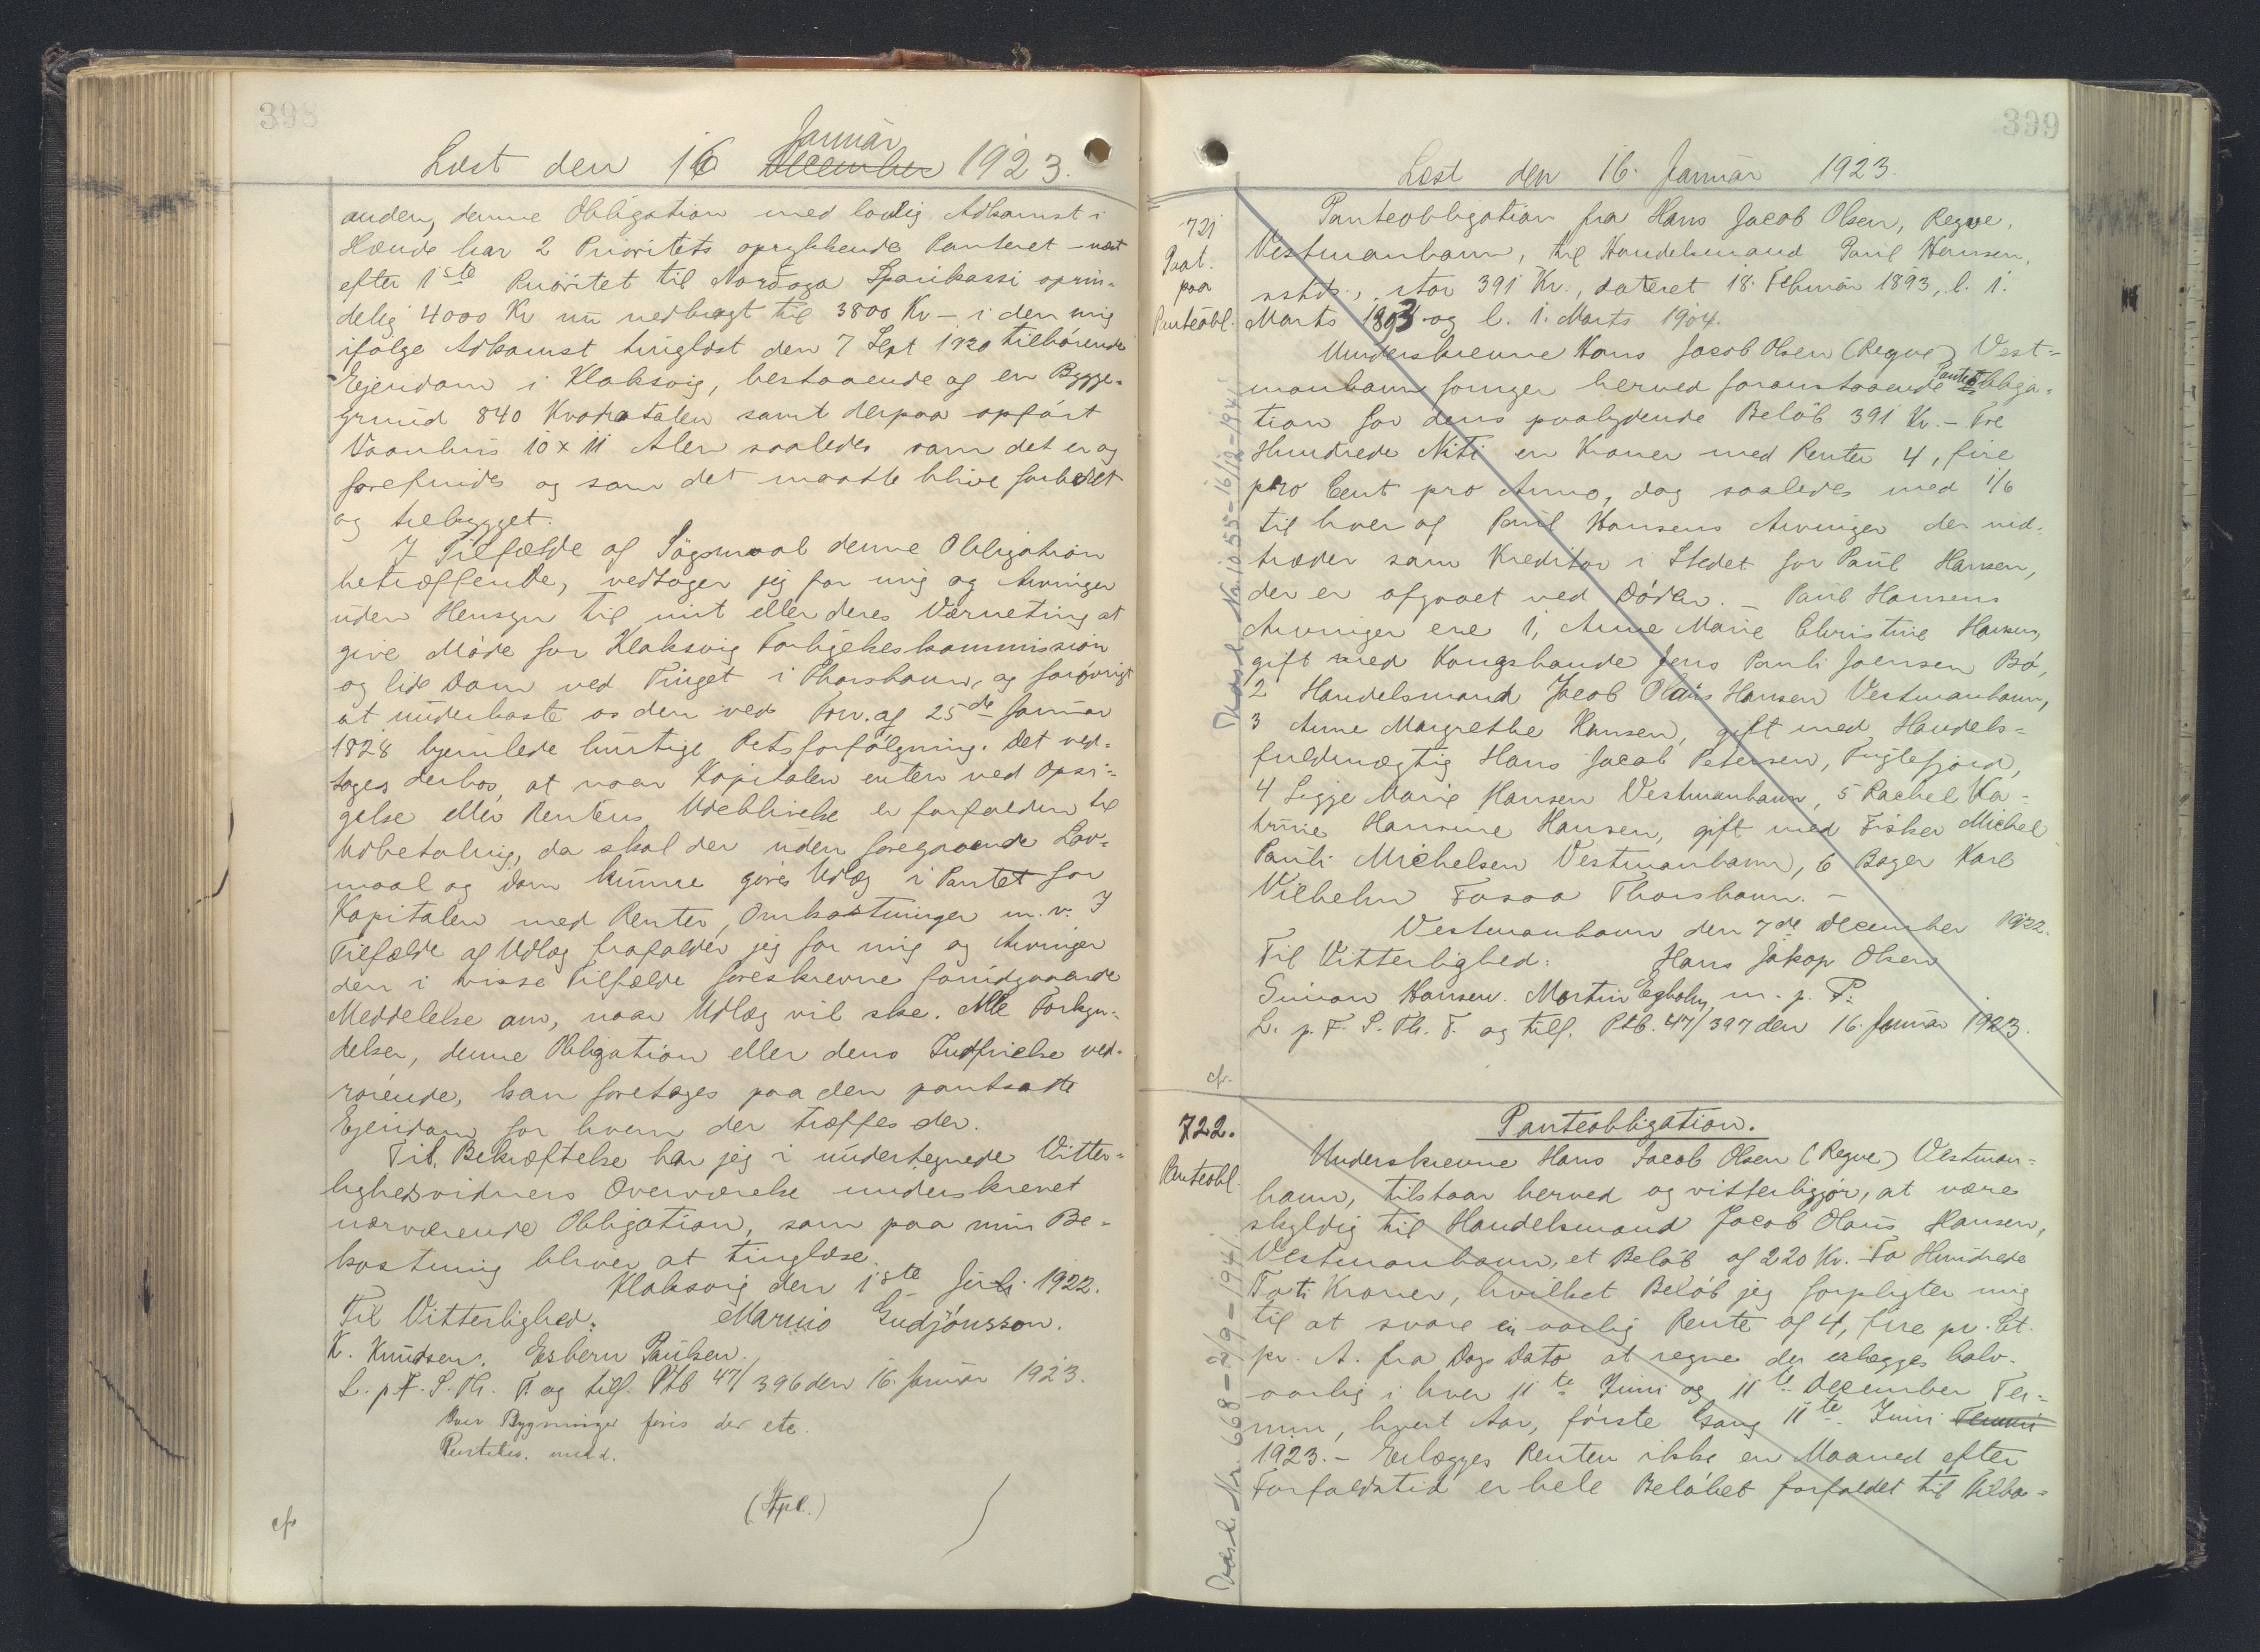 398
Læst den 16 Januar December 1923.
anden, denne Obligation med lovlig Adkomst i
Hænde har 2 Prioritets oprykkende Panteret – næst
efter 1ste Prioritet til Nordoya Sparikassi oprin-
delig 4000 Kr nu nedbragt til 3800 Kr – i den mig
ifølge Adkomst tinglæst den 7 Sept 1920 tilhørende
Ejendom i Klaksvig, bestaaende af en Bygge-
grund 840 Kvadratalen samt derpaa opført
Vaanhus 10 x 11 Alen saaledes som det er og
forefindes og som det maatte blive forbedret
og tilbygget.
I Tilfælde af Søgsmaal denne Obligation
betræffende, vedtager jeg for mig og Arvinger
uden Hensyn til mit eller deres Værneting at
give Møde for Klaksvig Forligelseskommission
og lide Dom ved Tinget i Thorshavn, og forøvrigt
at underkaste os den ved Frv. af 25de Januar
1828 hjemlede hurtige Retsforfølgning. Det ved-
tages derhos, at naar Kapitalen enten ved Opsi-
gelse eller Rentens Udeblivelse er forfalden til
Udbetaling, da skal der uden foregaaende Lov-
maal og Dom kunne gøres Udlæg i Pantet for
Kapitalen med Renter, Omkostninger m. v. I
Tilfælde af Udlæg frafalder jeg for mig og Arvinger
den i visse Tilfælde foreskrevne forudgaaende
Meddelelse om, naar Udlæg vil ske. Alle Forkyn-
delser, denne Obligation eller dens Indfrielse ved-
rørende, kan foretages paa den pantsatte
Ejendom for hvem der træffes der.
Til Bekræftelse har jeg i undertegnede Vitter-
lighedsvidners Overværelse underskrevet
nærværende Obligation, som paa min Be-
kostning bliver at tinglæse.
Klaksvig den 1ste Juli 1922.
Til Vitterlighed: Marius Gudjónsson.
K. Knudsen. Esbern Paulsen.
L. p F. S. Th. T. og tilf. Ptb 47/396 den 16. Januar 1923.
Over Bygninger føris der etc.
(Stpl.)
cfr
399
Læst den 16. Januar 1923.
721
Paat.
paa
Panteobl.
Panteobligation fra Hans Jacob Olsen, Regve,
Vestmanhavn, til Handelsmand Paul Hansen,
sstds., stor 391 Kr., dateret 18. Februar 1893, l. 1.
Marts 1893 og l. 1. Marts 1904.
Underskrevne Hans Jacob Olsen (Regve) Vest-
manhavn fornyer herved foranstaaende Panteobliga-
tion for dens paalydende Beløb 391 Kr. – Tre
Hundrede Niti en Kroner med Renter 4, fire
pro Cent pro Anno, dog saaledes med 1/6
til hver af Paul Hansens Arvinger der ind-
træder som Kreditor i Stedet for Paul Hansen,
der er afgaaet ved Døden. – Paul Hansens
Arvinger ere 1, Anne Marie Christine Hansen,
gift med Kongsbonde Jens Pauli Joensen Bø,
2 Handelsmand Jacob Olaus Hansen Vestmanhavn,
3 Anne Margrethe Hansen, gift med Handels-
fuldmægtig Hans Jacob Petersen, Fuglefjord,
4 Siggje Marie Hansen Vestmanhavn, 5 Rachel Ka-
trine Hansine Hansen, gift med Fisker Michel
Pauli Michelsen Vestmanhavn, 6 Bager Karl
Vilhelm Fosaa Thorshavn. –
Vestmanhavn den 7de December 1922.
Til Vitterlighed: Hans Jákop Olsen
Simon Hansen. Martin Egholm m. p. P.
L. p. F. S. Th. T. og tilf. Ptb. 47/397 den 16. Januar 1923.
cfr.
722.
Panteobl.
Panteobligation.
Underskrevne Hans Jacob Olsen (Regve) Vestman-
havn, tilstaar herved og vitterligjør, at være
skyldig til Handelsmand Jacob Olaus Hansen,
Vestmanhavn, et Beløb af 220 Kr. – To Hundrede
Toti Kroner, hvilket Beløb jeg forpligter mig
til at svare en aarlig Rente af 4, fire pr. Ct.
pr. A. fra Dags Dato at regne der erlægges halv-
aarlig i hver 11te Juni og 11te December Ter-
min, hvert Aar, første Gang 11te Juni Termin
1923. – Erlægges Renten ikke en Maaned efter
Forfaldstid er hele Beløbet forfaldet til Tilba-
Udsl. No. 1055-16/12-1941
Udsl. Nr. 668-2/9-1941